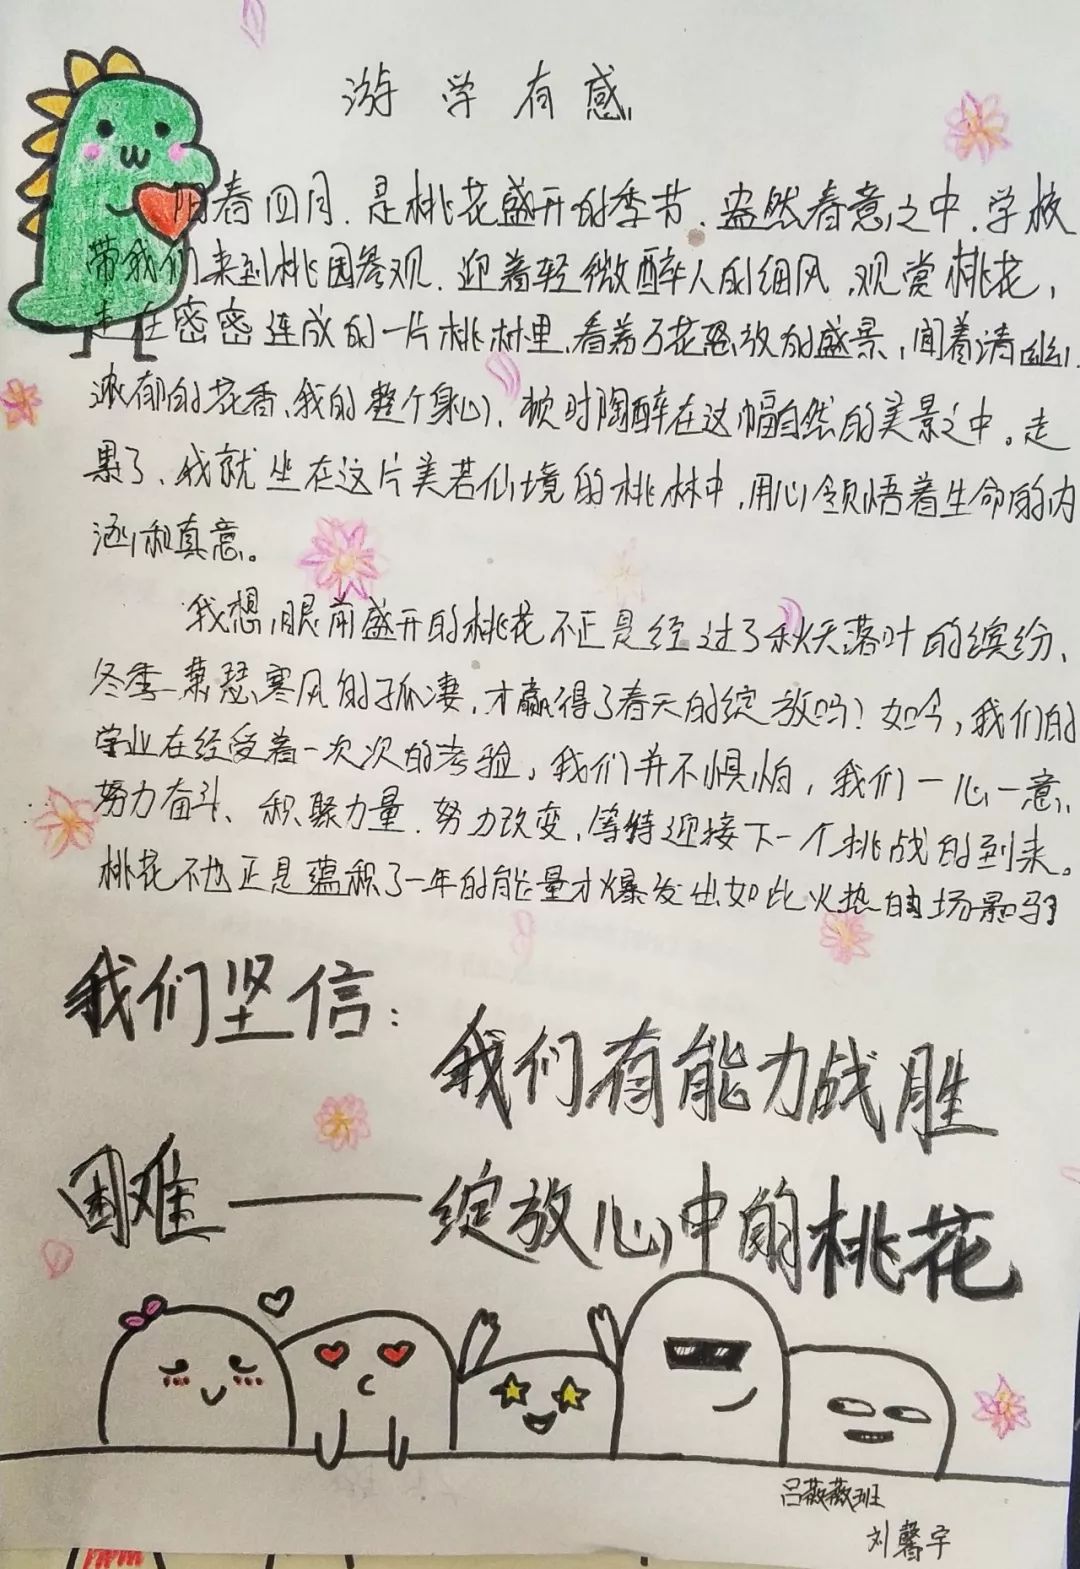 游学有感
阳春四月.是桃花盛开的季节.盎然春意之中.学校
带我们来到桃园参观.迎着轻微醉人的细风,观赏桃花,
走在密密连成的一片桃树里、看着万花怒放的盛景,闻着清幽
浓郁的花香、我的整个身心、顿时陶醉在这幅自然的美景之中。走
累了、我就坐在这片美若仙境的桃林中,用心领悟着生命的内
涵和真意。
我想,眼前盛开的桃花不正是经过了秋天落叶的缤纷、
冬季萧瑟寒风的孤凄,才赢得了春天的绽放吗?如今,我们的
学业在经受着一次次的考验,我们并不惧怕,我们一心一意、
努力奋斗、积聚力量.努力改变,等待迎接下一个挑战的到来。
桃花不也正是蕴积了一年的能量才爆发出如此火热的场景吗?
我们坚信:
我们有能力战胜
困难——绽放心中的桃花
吕薇薇班
刘馨宇